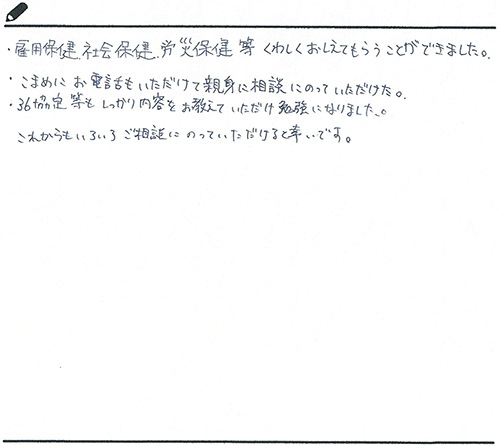 ・雇用保健、社会保健、労災保健 等 くわしくおしえてもらうことができました。
・こまめに お電話もいただけて親身に相談にのっていただけた。
・36協定 等も しっかり内容をお教えていただけ勉強になりました。
これからもいろいろ ご相談に のっていただけると幸いです。